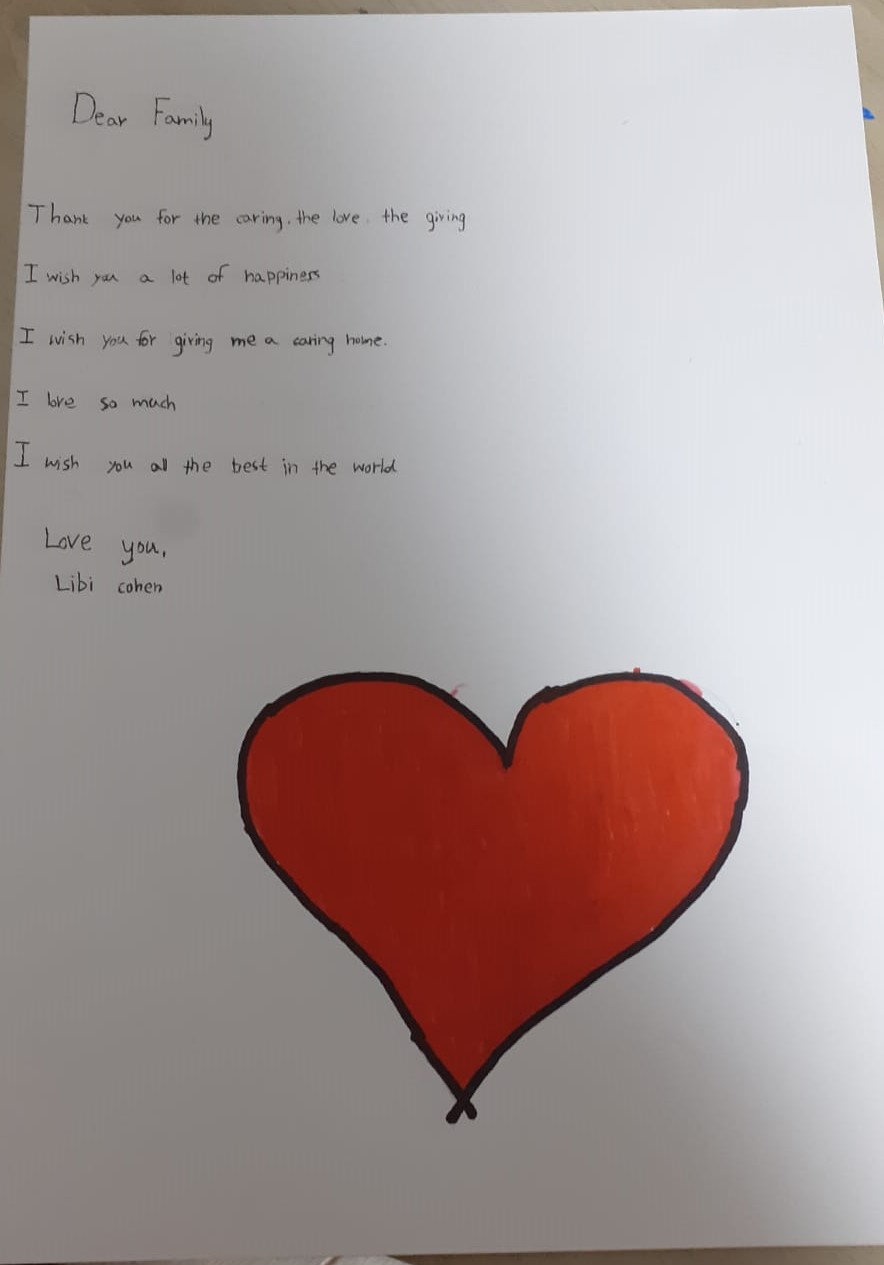 Dear Family
Thank you for the caring. the love. the giving
I wish you a lot of happiness
I wish you for giving me a caring home.
I love so much
I wish you all the best in the world
Love you,
Libi cohen